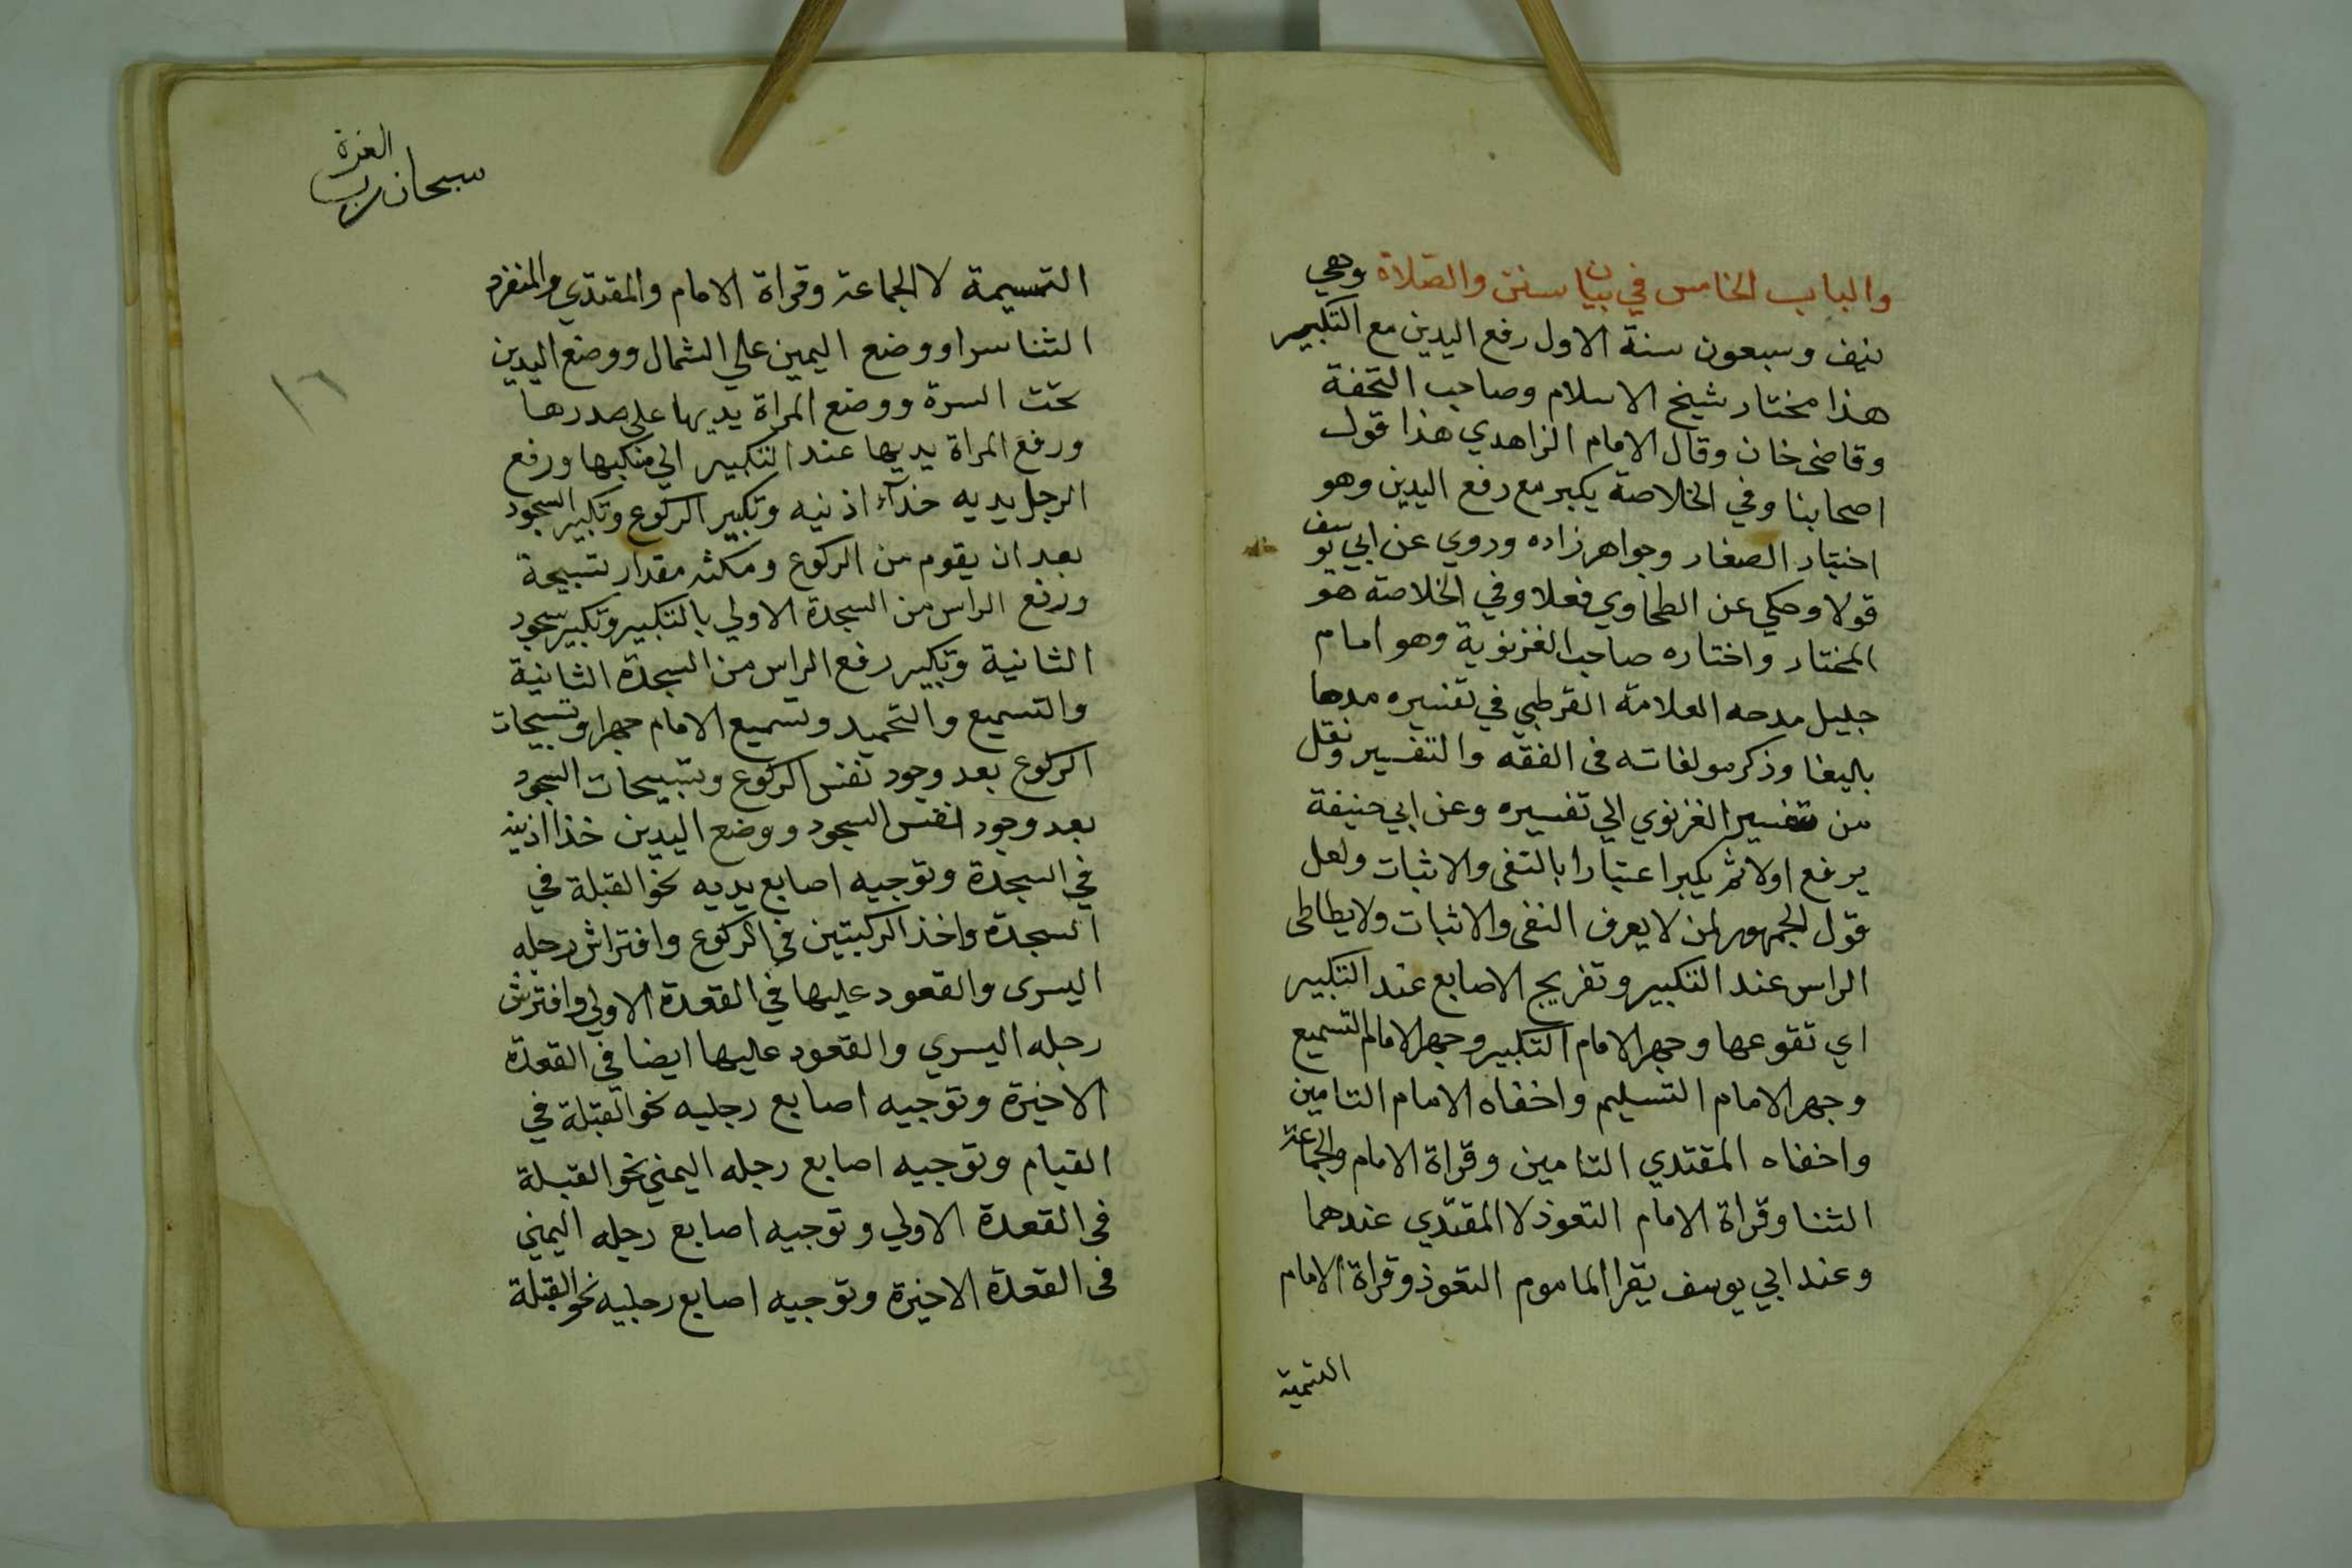 والباب الخامس في بيان سنن والصلاة وهي
نيف وسبعون سنة الاول رفع اليدين مع التكبير
هذا مختار شيخ الاسلام وصاحب التحفة
وقاضى خان وقال الامام الزاهدي هذا قول
اصحابنا وفي الخلاصة يكبر مع رفع اليدين وهو
اختيار الصفار وجواهر زاده وروي عن ابي يوسف
قولا وحكي عن الطحاوي فعلا وفي الخلاصة هو
المختار واختاره صاحب الغزنوية وهو امام
جليل مدحه العلامة القرطبي في تفسيره مدحا
باليغا وذكر مولفاته فى الفقه والتفسير ونقل
من تفسير الغزنوي الي تفسيره وعن ابي حنيفة
يرفع اولا ثم يكبر اعتبارا بالنفى والاثبات ولعل
قول الجمهور لمن لا يعرف النفى والاثبات ولا يطاطى
الراس عند التكبير وتفريج الاصابع عند التكبير
اي تقوعها وجهر الامام التكبير وجهر الامام التسميع
وجهر الامام التسليم واخفاه الامام التامين
واخفاه المقتدي التامين وقراة الامام والجماعة
الثنا وقراة الامام التعوذ لا المقتدي عندهما
وعند ابي يوسف يقرا الماموم التعوذ وقراة الامام
التسمية
سبحان رب العزة
١٦
التسيمة لا الجماعة وقراة الامام والمقتدي والمنفرد
الثنا سرا ووضع اليمين علي الشمال ووضع اليدين
تحت السرة ووضع المراة يديها على صدرها
ورفع المراة يديها عند التكبير الي منكبها ورفع
الرجل يديه خذآء اذنيه وتكبير الركوع وتكبير السجود
بعد ان يقوم من الركوع ومكثه مقدار تسبيحة
ورفع الراس من السجدة الاولي بالتكبير وتكبير سجود
الثانية وتكبير رفع الراس من السجدة الثانية
والتسميع والتحميد وتسميع الامام جهرا وتسبيحات
الركوع بعد وجود نفس الركوع وتسبيحات السجود
بعد وجود انفس السجود ووضع اليدين خذا اذنيه
في السجدة وتوجيه اصابع يديه نحو القبلة في
السجدة واخذ الركبتين في الركوع وافتراش رجله
اليسرى والقعود عليها في القعدة الاولي وافترش
رجله اليسري والقعود عليها ايضا في القعدة
الاخيرة وتوجيه اصابع رجليه نحو القبلة في
القيام وتوجيه اصابع رجله اليمني نحو القبلة
فى القعدة الاولي وتوجيه اصابع رجله اليمني
فى القعدة الاخيرة وتوجيه اصابع رجليه نحو القبلة